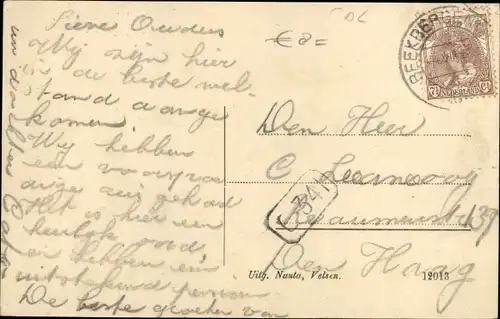 Lieve Ouders
Wij zijn hier
in de beste wel-
stand aange
komen.
Wij hebben
een voorspoe
dige reis gehad
Het is hier een
heerlijk oord,
en hebben een
uitstekend pension
De beste groeten van
en
DL
€ 8=
BEEKBERGEN
7½ NEDERLAND 7½
Den Heer
C
341
39
Den Haag
Uitg. Nauta, Velsen.
12013